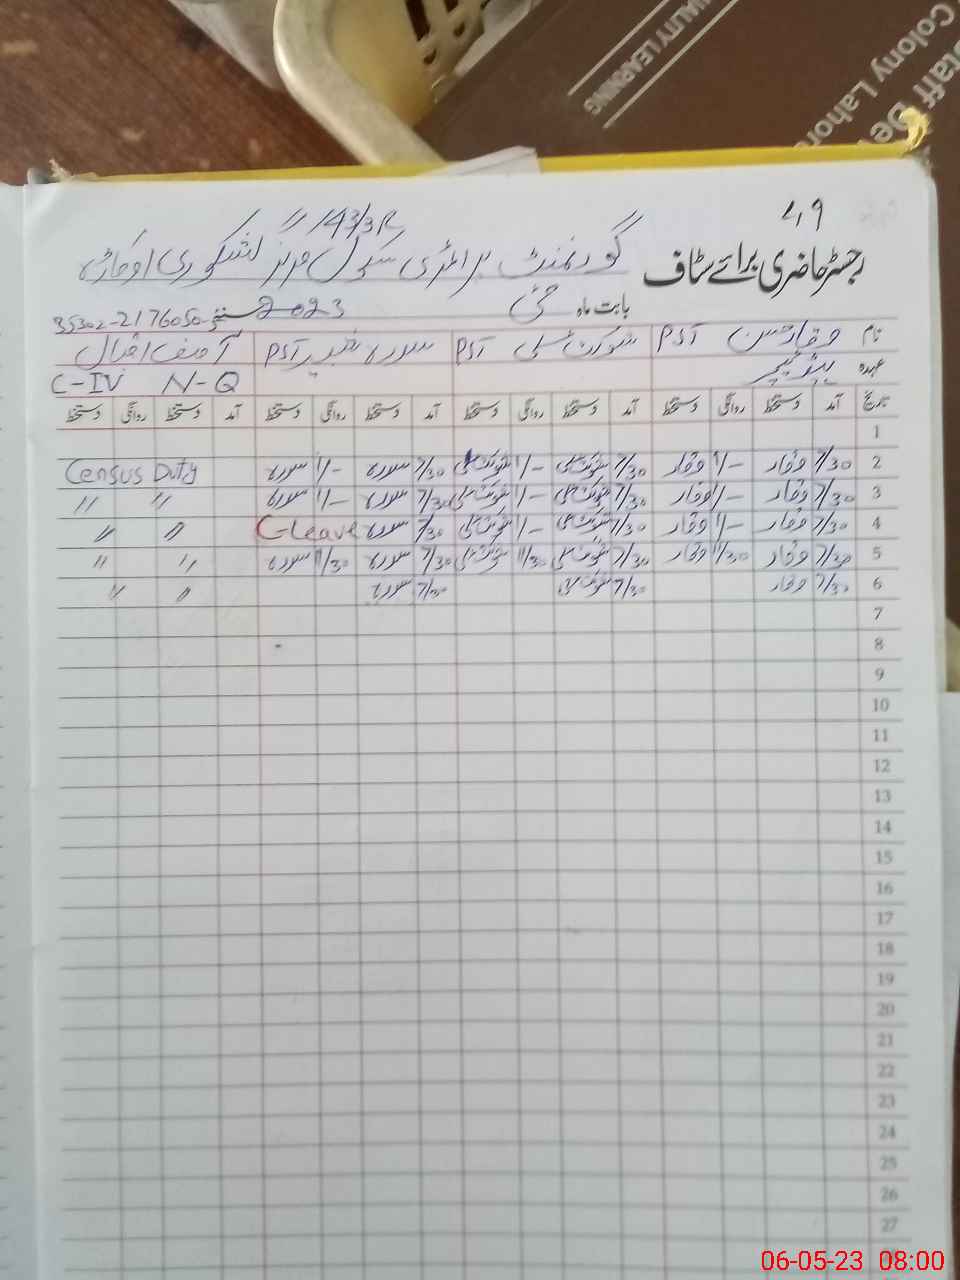 QUALITY LEARNING
Staff De
Colony Lahor
49
رجسٹر حاضری برائے سٹاف
گورنمنٹ پرائمری سکول 143/3R
بابت ماہ مئی 2023
35302-2176050-
نام وقار حسن PST شوکت علی PST سدرہ PST آصف اقبال
عہدہ ہیڈ ٹیچر C-IV N-Q
تاریخ آمد دستخط روانگی دستخط آمد دستخط روانگی دستخط آمد دستخط روانگی دستخط آمد دستخط روانگی دستخط
1
2 7/30 وقار 1/- وقار 7/30 شوکت علی 1/- شوکت علی 7/30 سدرہ 1/- سدرہ Census Duty
3 7/30 وقار 1/- وقار 7/30 شوکت علی 1/- شوکت علی 7/30 سدرہ 1/- سدرہ " "
4 7/30 وقار 1/- وقار 7/30 شوکت علی 1/- شوکت علی 7/30 سدرہ C-Leave " "
5 7/30 وقار 11/30 وقار 7/30 شوکت علی 11/30 شوکت علی 7/30 سدرہ 11/30 سدرہ " "
6 7/30 وقار 7/30 شوکت علی 7/30 سدرہ " "
7
8
9
10
11
12
13
14
15
16
17
18
19
20
21
22
23
24
25
26
27
06-05-23 08:00